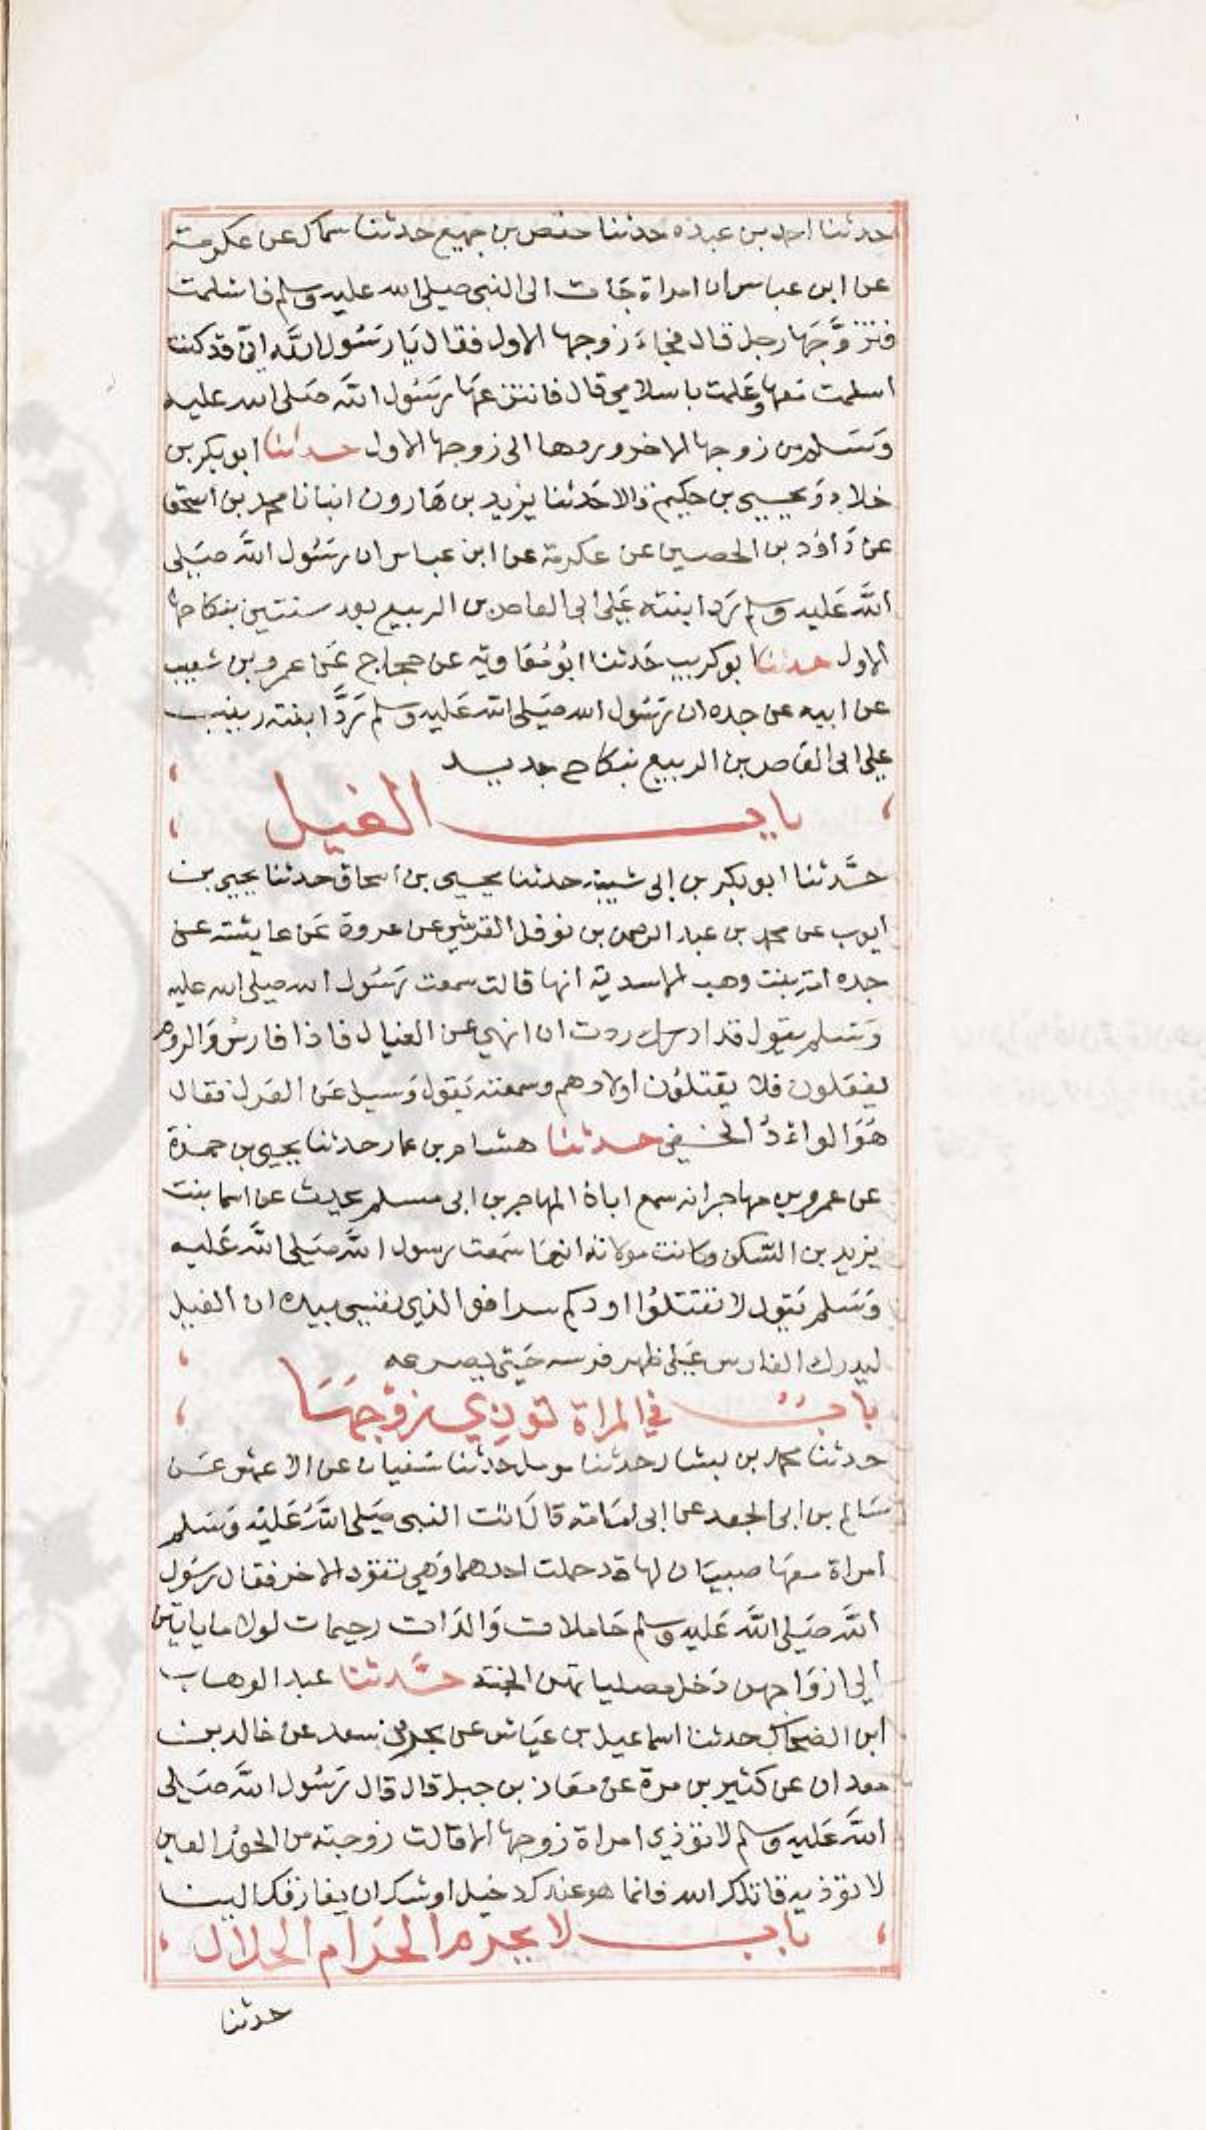 حدثنا احمد بن عبده حدثنا حفص بن جميع حدثنا سماك عن عكرمة
عن ابن عباس ان امراة جات الى النبي صلى الله عليه وسلم فاسلمت
فتزوَّجَها رجل قال فجاءَ زوجها الاول فقال يَا رَسُول اللَّه انى قد كنت
اسلمت معها وعَلمت باسلامي قال فانتزعهَا رَسُول اللَّه صَلى الله عليه
وَسَلم من زوجها الاخر وردها الى زوجها الاول حدثنا ابو بكر بن
خلاد وَيحيي بن حكيم قالا حَدثنا يزيد بن هَارون انبانا محمد بن اسحق
عن دَاوُد بن الحصين عن عكرمة عن ابن عباس ان رسُول اللَّه صَلى
اللَّه عَليه وسلم رَد ابنته عَلى ابى العاص بن الربيع بعد سنتين بنكاحها
الاول حدثنا ابو كريب حَدثنا ابُو مُعَاويَة عن حجاج عَن عمرو بن شعيب
عن ابيه عن جده ان رَسُول الله صَلى الله عَليه وسلم رَدَّ ابنته زينب
على ابى العَاص بن الربيع بنكاح جديد
باب الغيل
حدَّثنا ابو بكر بن ابى شيبة حدثنا يحيى بن اسحاق حدثنا يحيى بن
ايوب عن محمد بن عبد الرحمن بن نوفل القرشي عن عروة عَن عايشة عن
جدامة بنت وهب الاسدية انها قالت سمعت رَسُول الله صلى الله عليه
وَسَلم يقول قد اردت ان انهي عن الغيال فاذا فارسُ وَالروم
يفعَلون فلا يقتلُون اولادهم وسمعته يَقول وَسيل عَن العَزل فقال
هُوَ الوَاءدُ الخفي حدثنا هشام بن عمار حدثنا يحيى بن حمزة
عن عمرو بن مهاجر انه سمع اباهُ المهاجر بن ابى مسلم يحدث عن اسما بنت
يزيد بن السَّكن وكانت مولاته انهَا سَمعت رسول اللَّه صَلى اللَّه عَليه
وَسَلم يَقول لا تقتلُوا اودكم سرا فو الذي نفسي بيده ان الغيل
ليدرك الفارس عَلى ظهر فرسه حَتى يصرعه
بابُ في المراة تؤذي زوْجهَا
حدثنا محمد بن بشار حدثنا مومل حدثنا سُفيان عن الاعمش عَن
سَالم بن ابى الجعد عن ابى امَامة قالَ اتت النبي صَلى اللَّهُ عَليْه وَسَلم
امراة معهَا صبيَان لها قد حملت احدهما وَهي تقود الاخر فقال رَسُول
اللَّه صَلى اللَّه عَليه وسلم حَاملات وَالدَات رحيمات لولا ما ياتين
الى ازوَاجهن دَخل مصلياتهن الجنة حدَّثنا عبد الوهاب
ابن الضحاك حدثنا اسماعيل بن عيَاش عن بحير بن سعد عن خالد بن
معدان عن كثير بن مرة عن معَاذ بن جبل قال قال رَسُول اللَّه صَلى
اللَّه عَليه وسلم لا تؤذي امراة زوجها الا قالت زوجته من الحوُر العين
لا تؤذيه قاتلك الله فانما هو عندك دخيل اوشك ان يفارقك الينا
باب لا يحرم الحَرَام الحلال
حدثنا